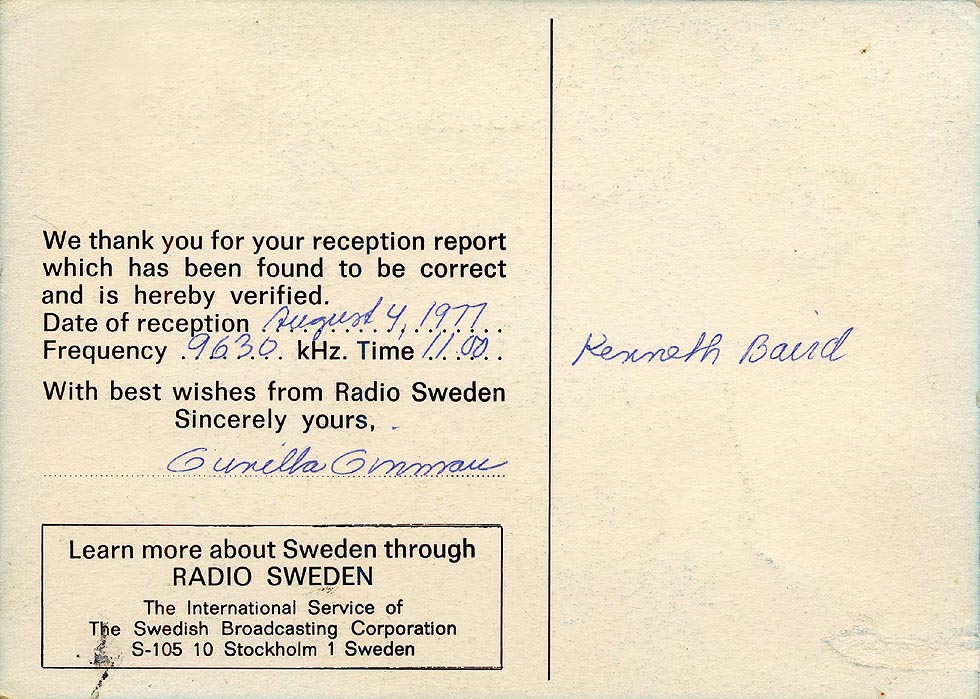 We thank you for your reception report
which has been found to be correct
and is hereby verified.
Date of reception August 4, 1977
Frequency 9630 kHz. Time 11.00
With best wishes from Radio Sweden
Sincerely yours,
Gunilla
Kenneth Baird
Learn more about Sweden through
RADIO SWEDEN
The International Service of
The Swedish Broadcasting Corporation
S-105 10 Stockholm 1 Sweden